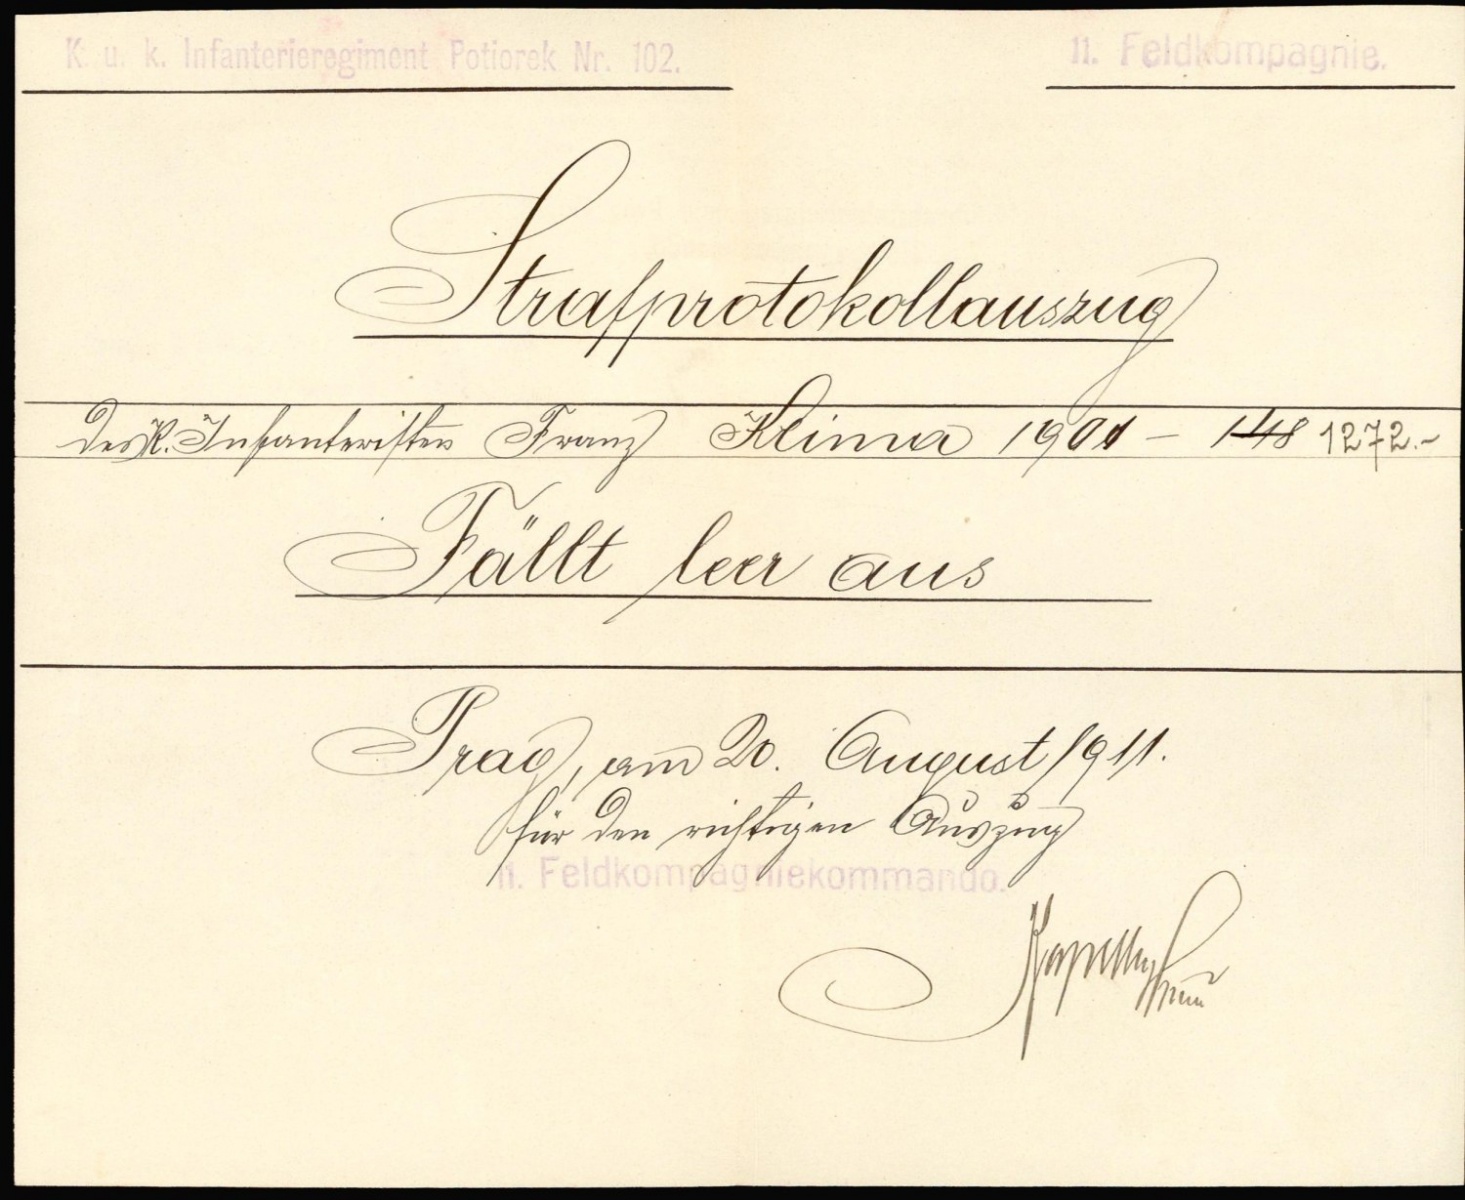 K. u. k. Infanterieregiment Potiorek Nr. 102.
11. Feldkompagnie.
Strafprotokollauszug
des R. Infanteristen Franz Klima 1901 – 148 1272.–
Fällt leer aus
Prag, am 20. August 1911.
für den richtigen Auszug
11. Feldkompagniekommando.